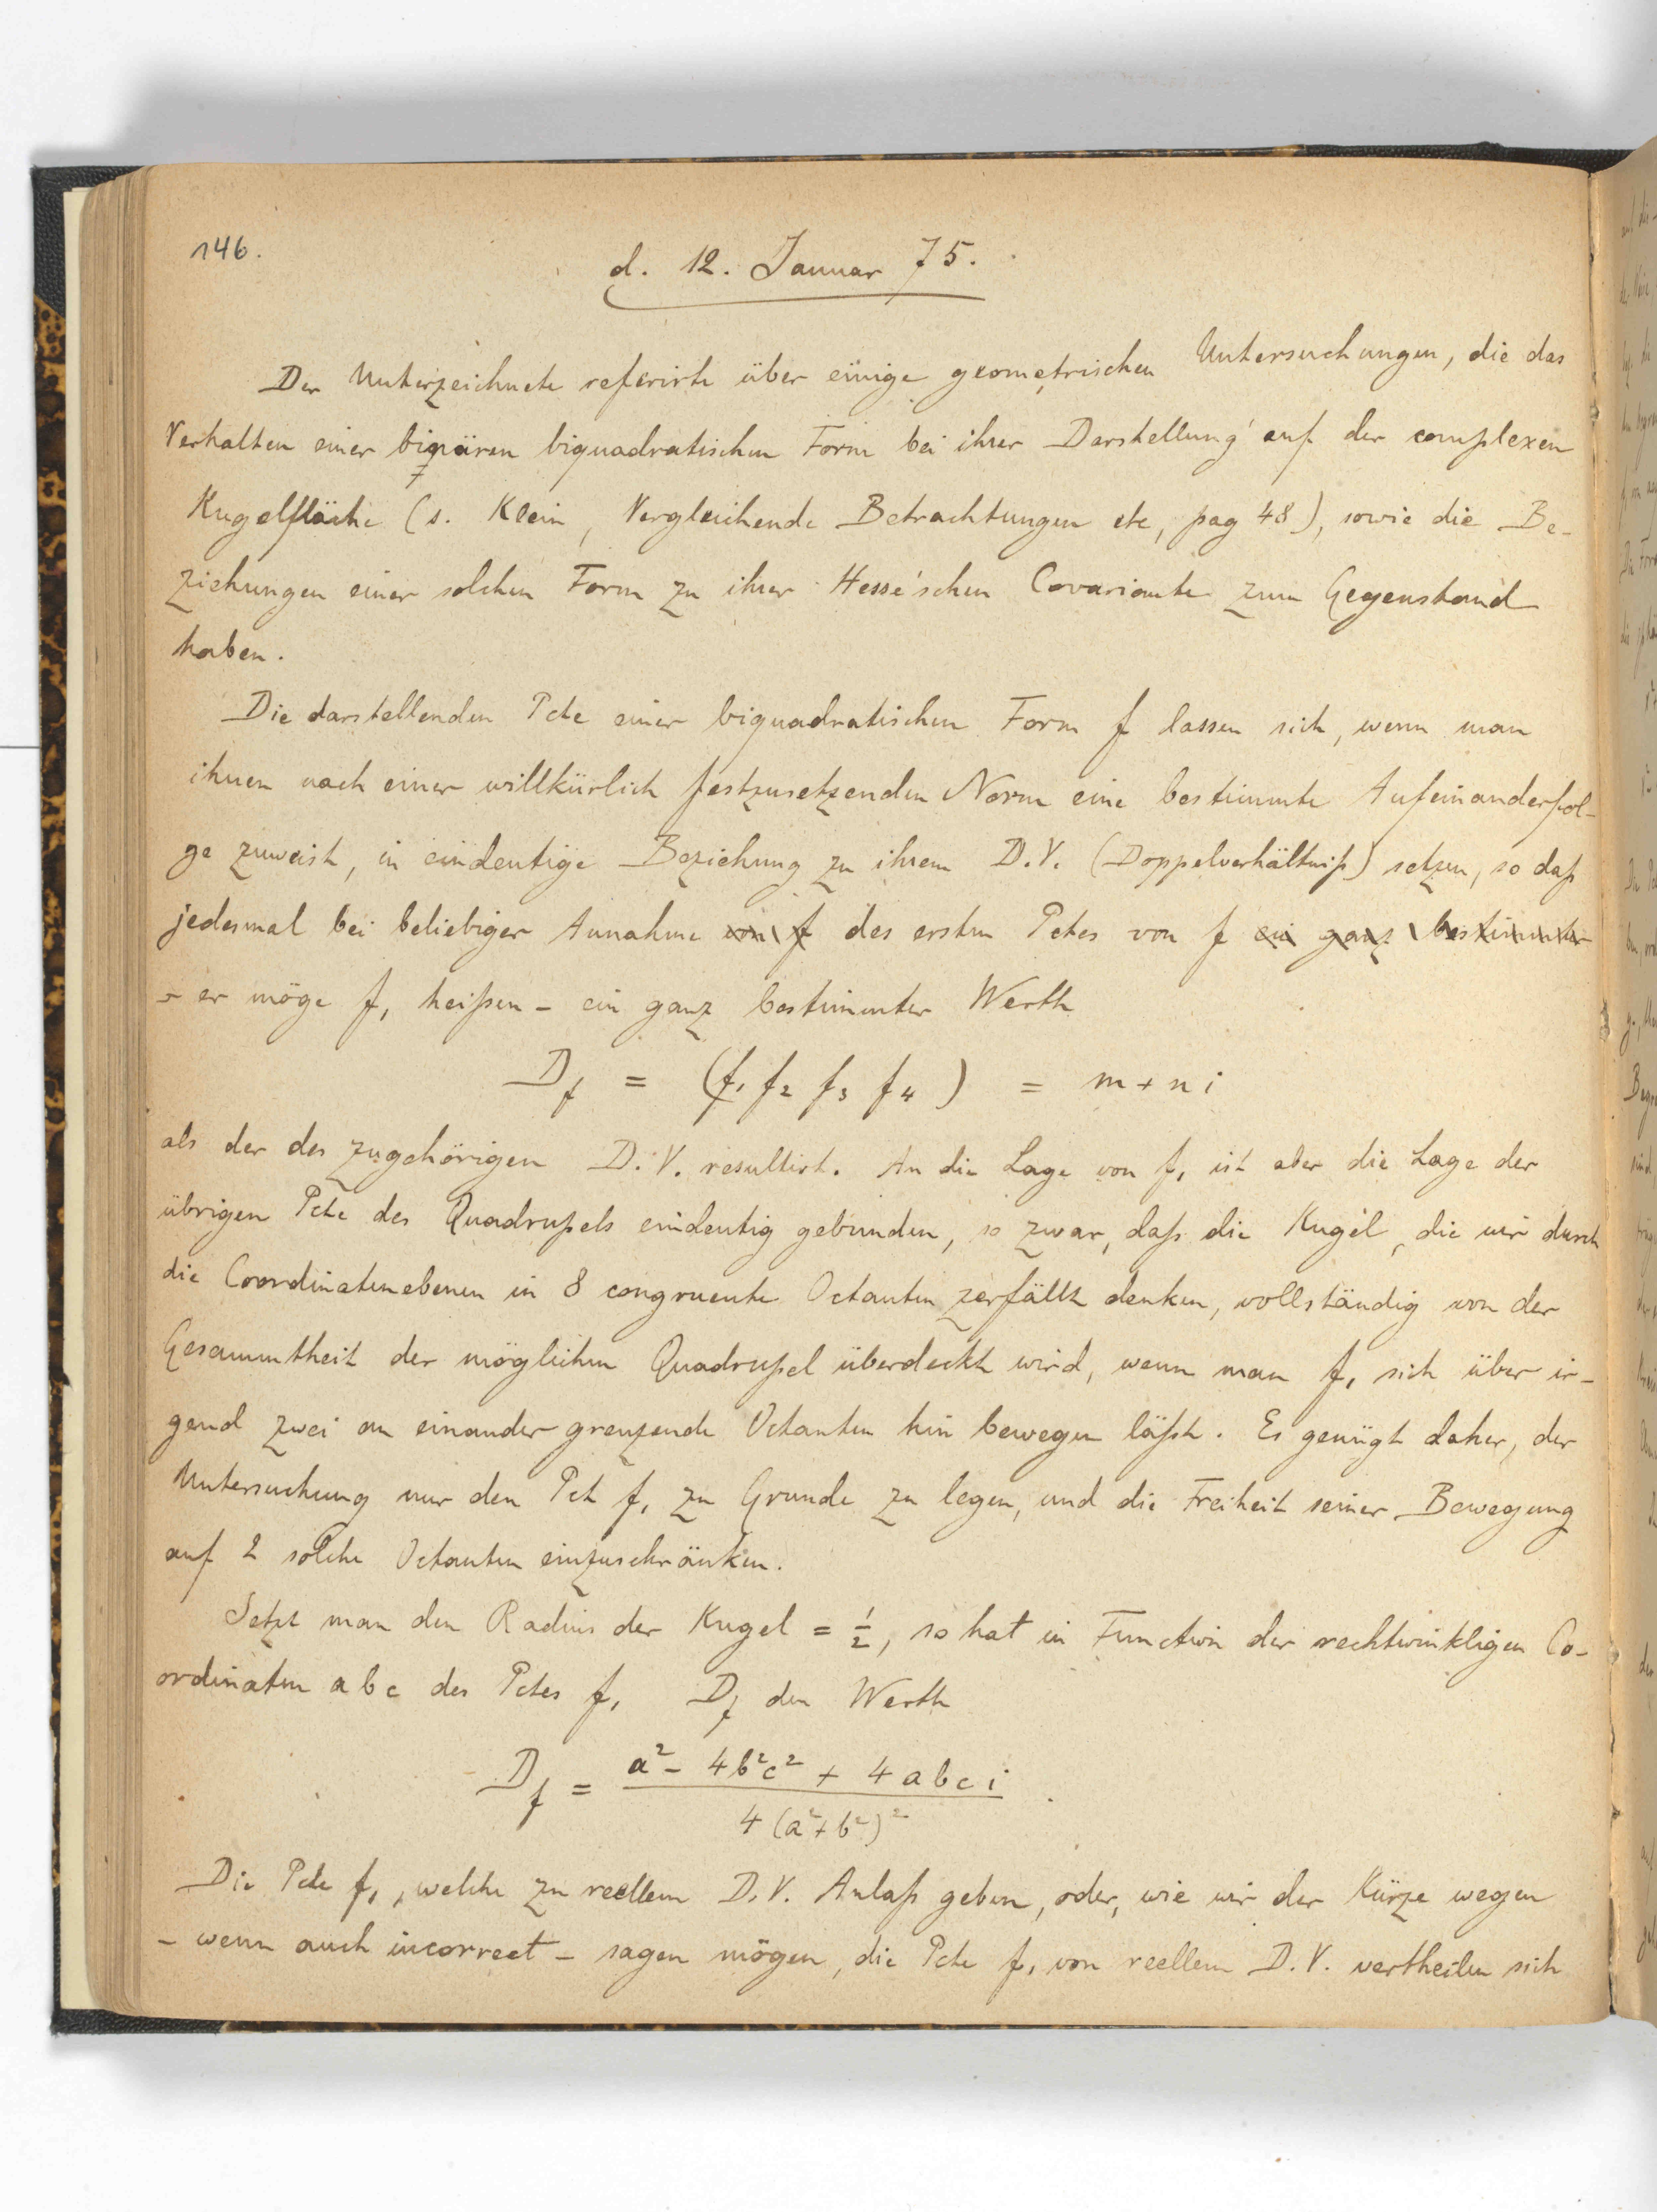 146.
d. 12. Januar 75.
Der Unterzeichnete referirte über einige geometrischen Untersuchungen, die das
Verhalten einer binären biquadratischen Form bei ihrer Darstellung auf der complexen
Kugelfläche (s. Klein, Vergleichende Betrachtungen etc, pag 48), sowie die Be-
ziehungen einer solchen Form zu ihrer Hesse'schen Covariante zum Gegenstand
haben.
Die darstellenden Pcte einer biquadratischen Form f lassen sich, wenn man
ihnen nach einer willkürlich festzusetzenden Norm eine bestimmte Aufeinanderfol-
ge zuweist, in eindeutige Beziehung zu ihrem D.V. (Doppelverhältniß) setzen, so daß
jedesmal bei beliebiger Annahme von f des ersten Pctes von f ein ganz bestimmter
- er möge f₁ heißen - ein ganz bestimmter Werth
D_f = (f₁ f₂ f₃ f₄) = m + n i
als der des zugehörigen D.V. resultirt. An die Lage von f₁ ist aber die Lage der
übrigen Pcte des Quadrupels eindeutig gebunden, so zwar, daß die Kugel, die wir durch
die Coordinatenebenen in 8 congruente Octanten zerfällt denken, vollständig von der
Gesammtheit der möglichen Quadrupel überdeckt wird, wenn man f₁ sich über ir-
gend zwei an einander grenzende Octanten hin bewegen läßt. Es genügt daher, der
Untersuchung nur den Pct f₁ zu Grunde zu legen, und die Freiheit seiner Bewegung
auf 2 solche Octanten einzuschränken.
Setzt man den Radius der Kugel = 1/2, so hat in Function der rechtwinkligen Co-
ordinaten a b c des Pctes f₁ D_f den Werth
D_f = (a² - 4b²c² + 4abc i) / (4(a²+b²)²) .
Die Pcte f₁, welche zu reellem D.V. Anlaß geben, oder, wie wir der Kürze wegen
- wenn auch incorrect - sagen mögen, die Pcte f₁ von reellem D.V. vertheilen sich